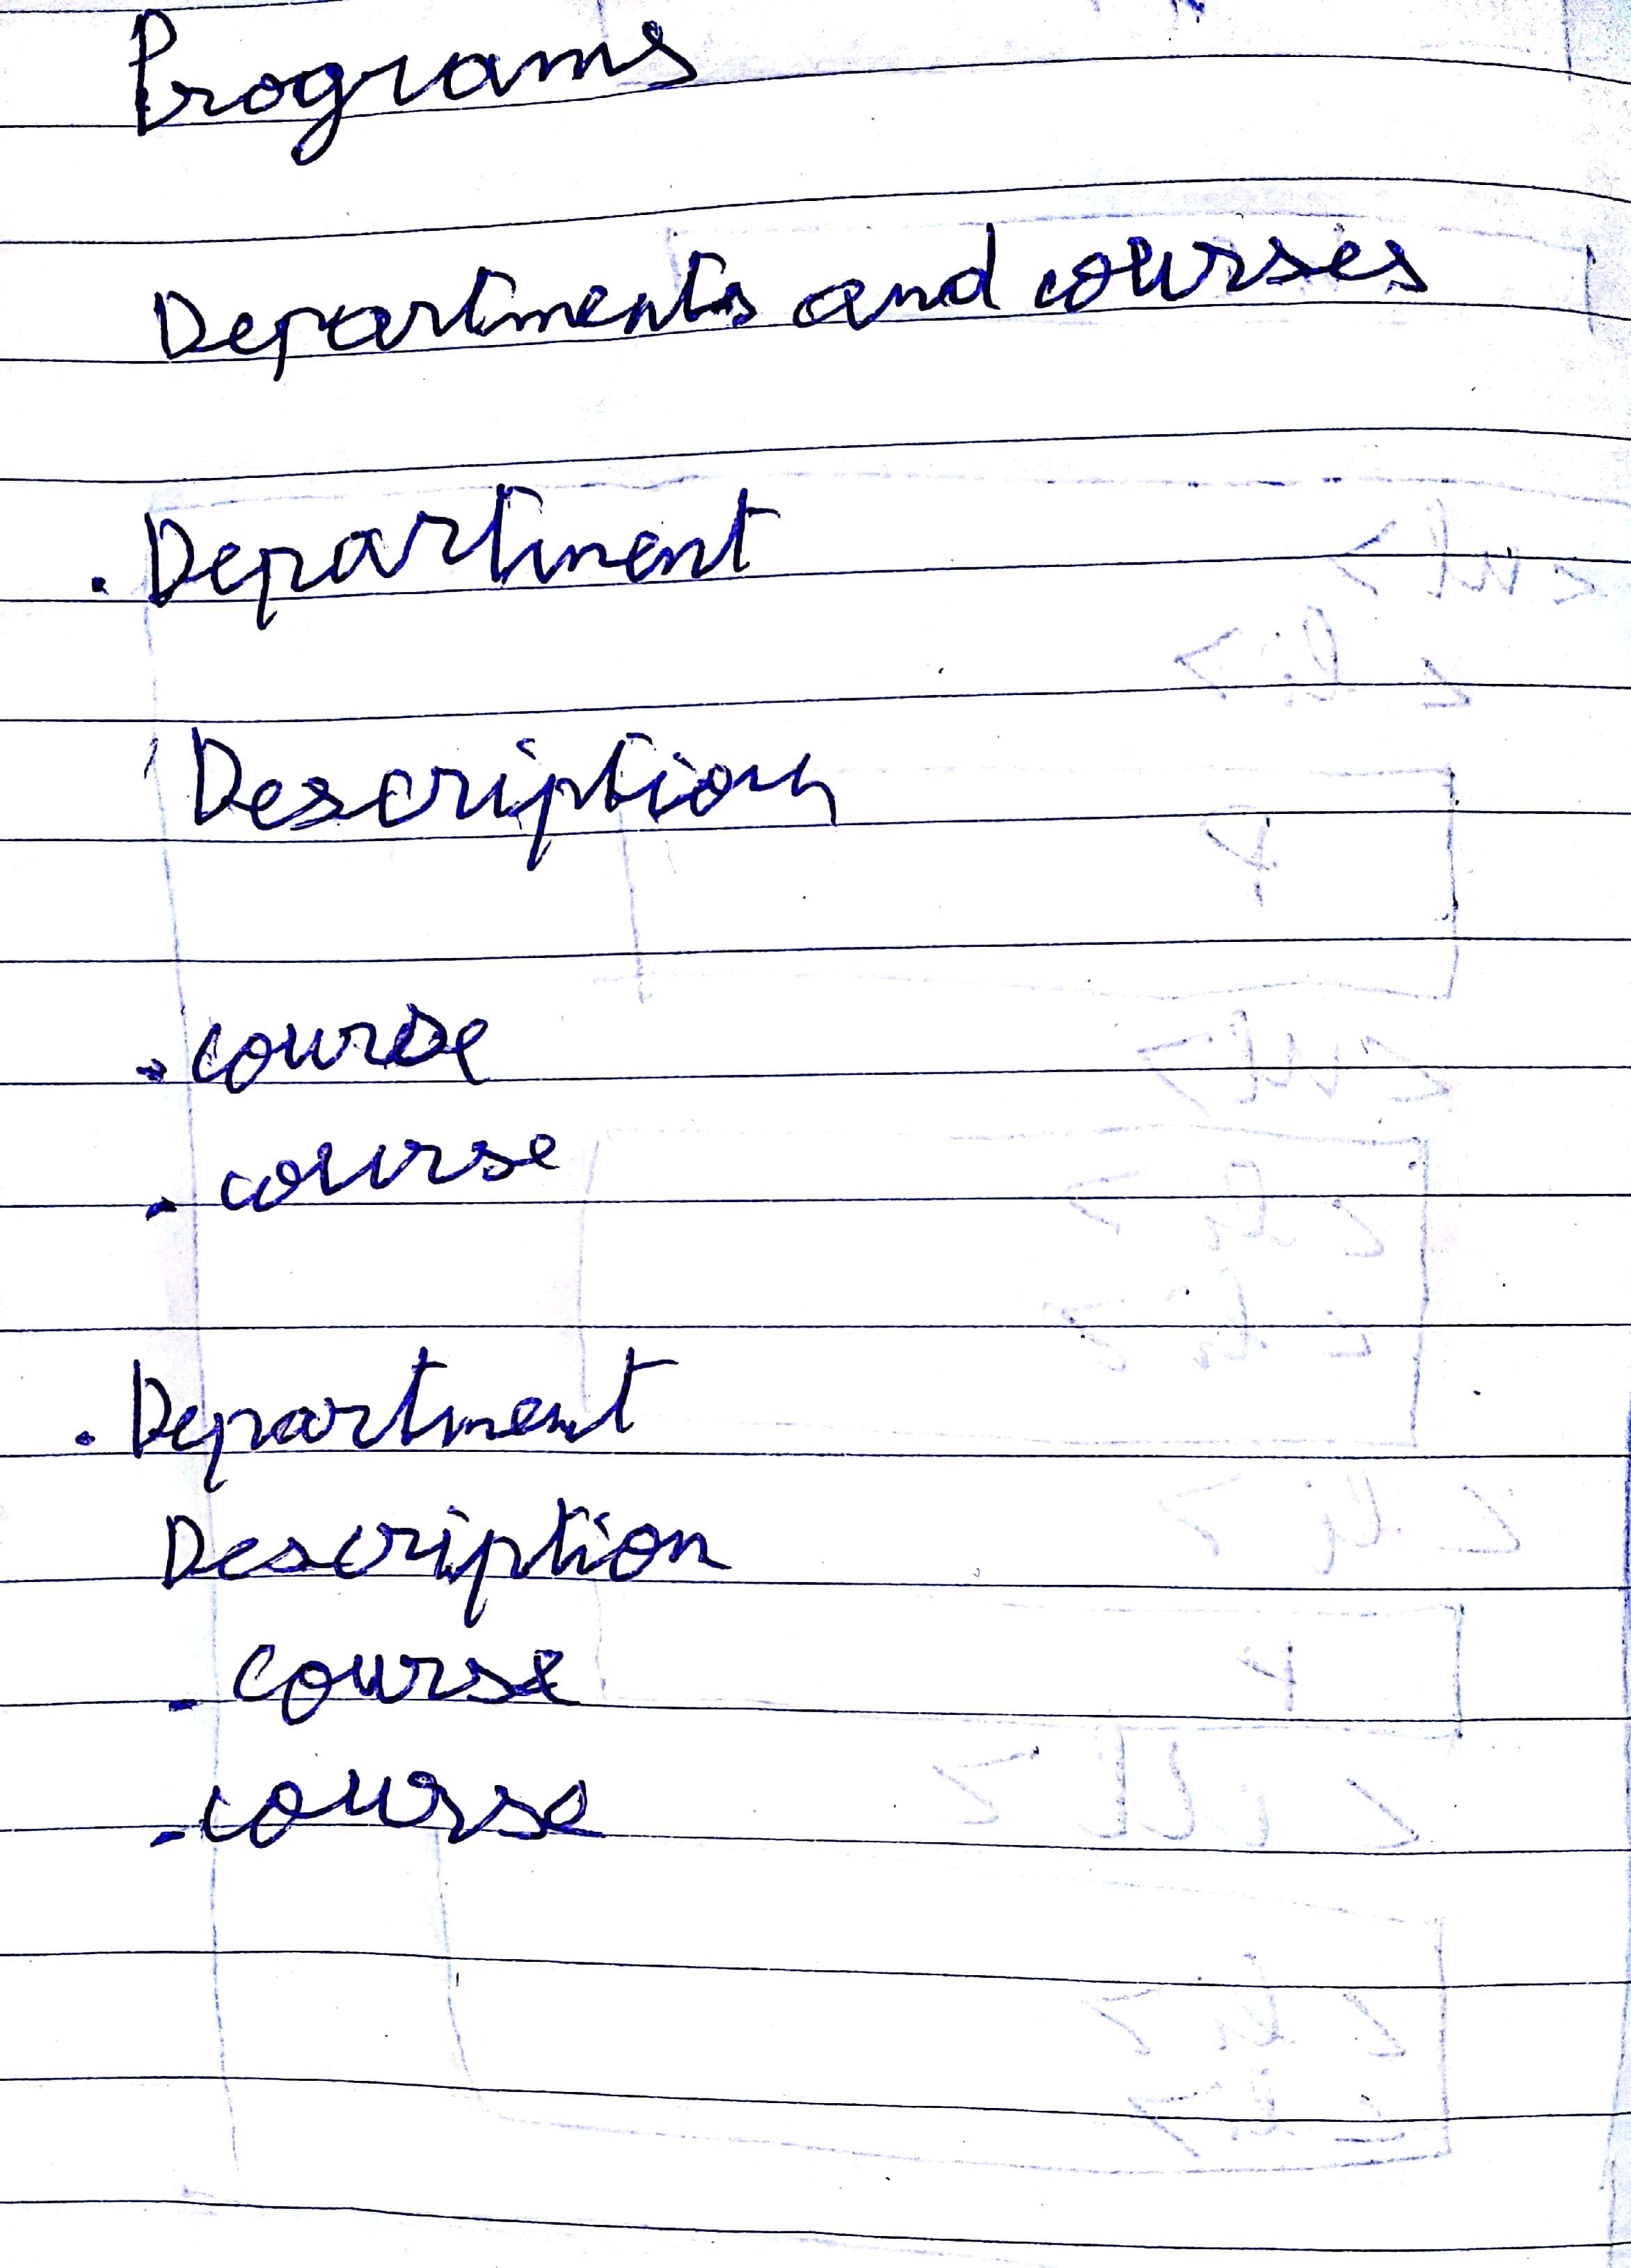 Programs
Departments and courses
. Department
Description
. course
. course
. Department
Description
- course
- course